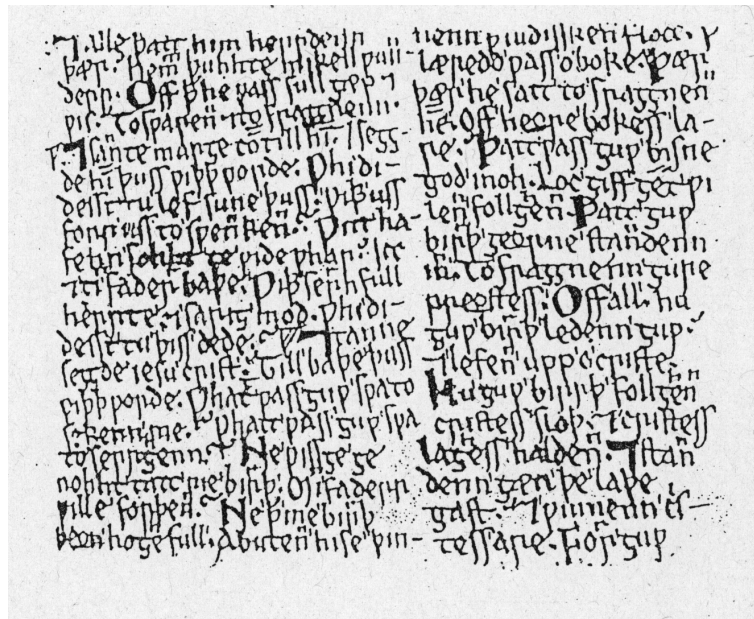 ⁊ alle þatt himm herrdenn
þær. hem̄ þuhhte mikell wun̄
derr. Off þ he wass full ȝep ⁊
wis. To swaren̄. ⁊ to fraȝȝnenn.
⁊ san̄te marȝe com̄ till him̄. ⁊ seȝȝ-
de him̄ þuss wiþþ worde. Whi di-
desst tu lef sune þuss. wiþþ uss
forr uss to swen̄ken̄. Witt ha-
fenn sohht te widewhar. Icc
⁊ ti faderr baþe. Wiþþ serrhfull
herrte. ⁊ sariȝ mod. whi di-
desst tu þiss dede. ⁊ tanne
seȝȝde iesu crist. Till baþe þuss
wiþþ worde. Whatt wass ȝuw swa to
sekenn me. whatt wass ȝuw swa
to serrȝhenn. Ne wisste ȝe
nohht tatt me birrþ. Min faderr
wille forþen̄. Ne þ me birrþ
beon hoȝhefull. Abuten̄ hise þin-
nenn þ iudissken̄ flocc. ⁊
læredd wass o boke. ⁊ tær
þær he satt to fraȝȝnen̄
hem̄. Off heore bokess la-
re. Þatt wass ȝuw bisne
god inoh. Loc ȝiff ȝet wi
len̄ follȝhen̄. Þatt ȝuw
birrþ ȝeorne stan̄denn
in̄. To fraȝȝnenn ȝure
preostess. Off all. hu
ȝuw birrþ ledenn ȝuw.
⁊ lefen̄ uppo criste.
Hu ȝuw birrþ follȝhen̄
cristess slop. ⁊ cristess
laȝhess halden̄. ⁊ stan̄
denn ȝen þe laþe
gast. ⁊ winnenn ec-
hess are. Forr ȝuw